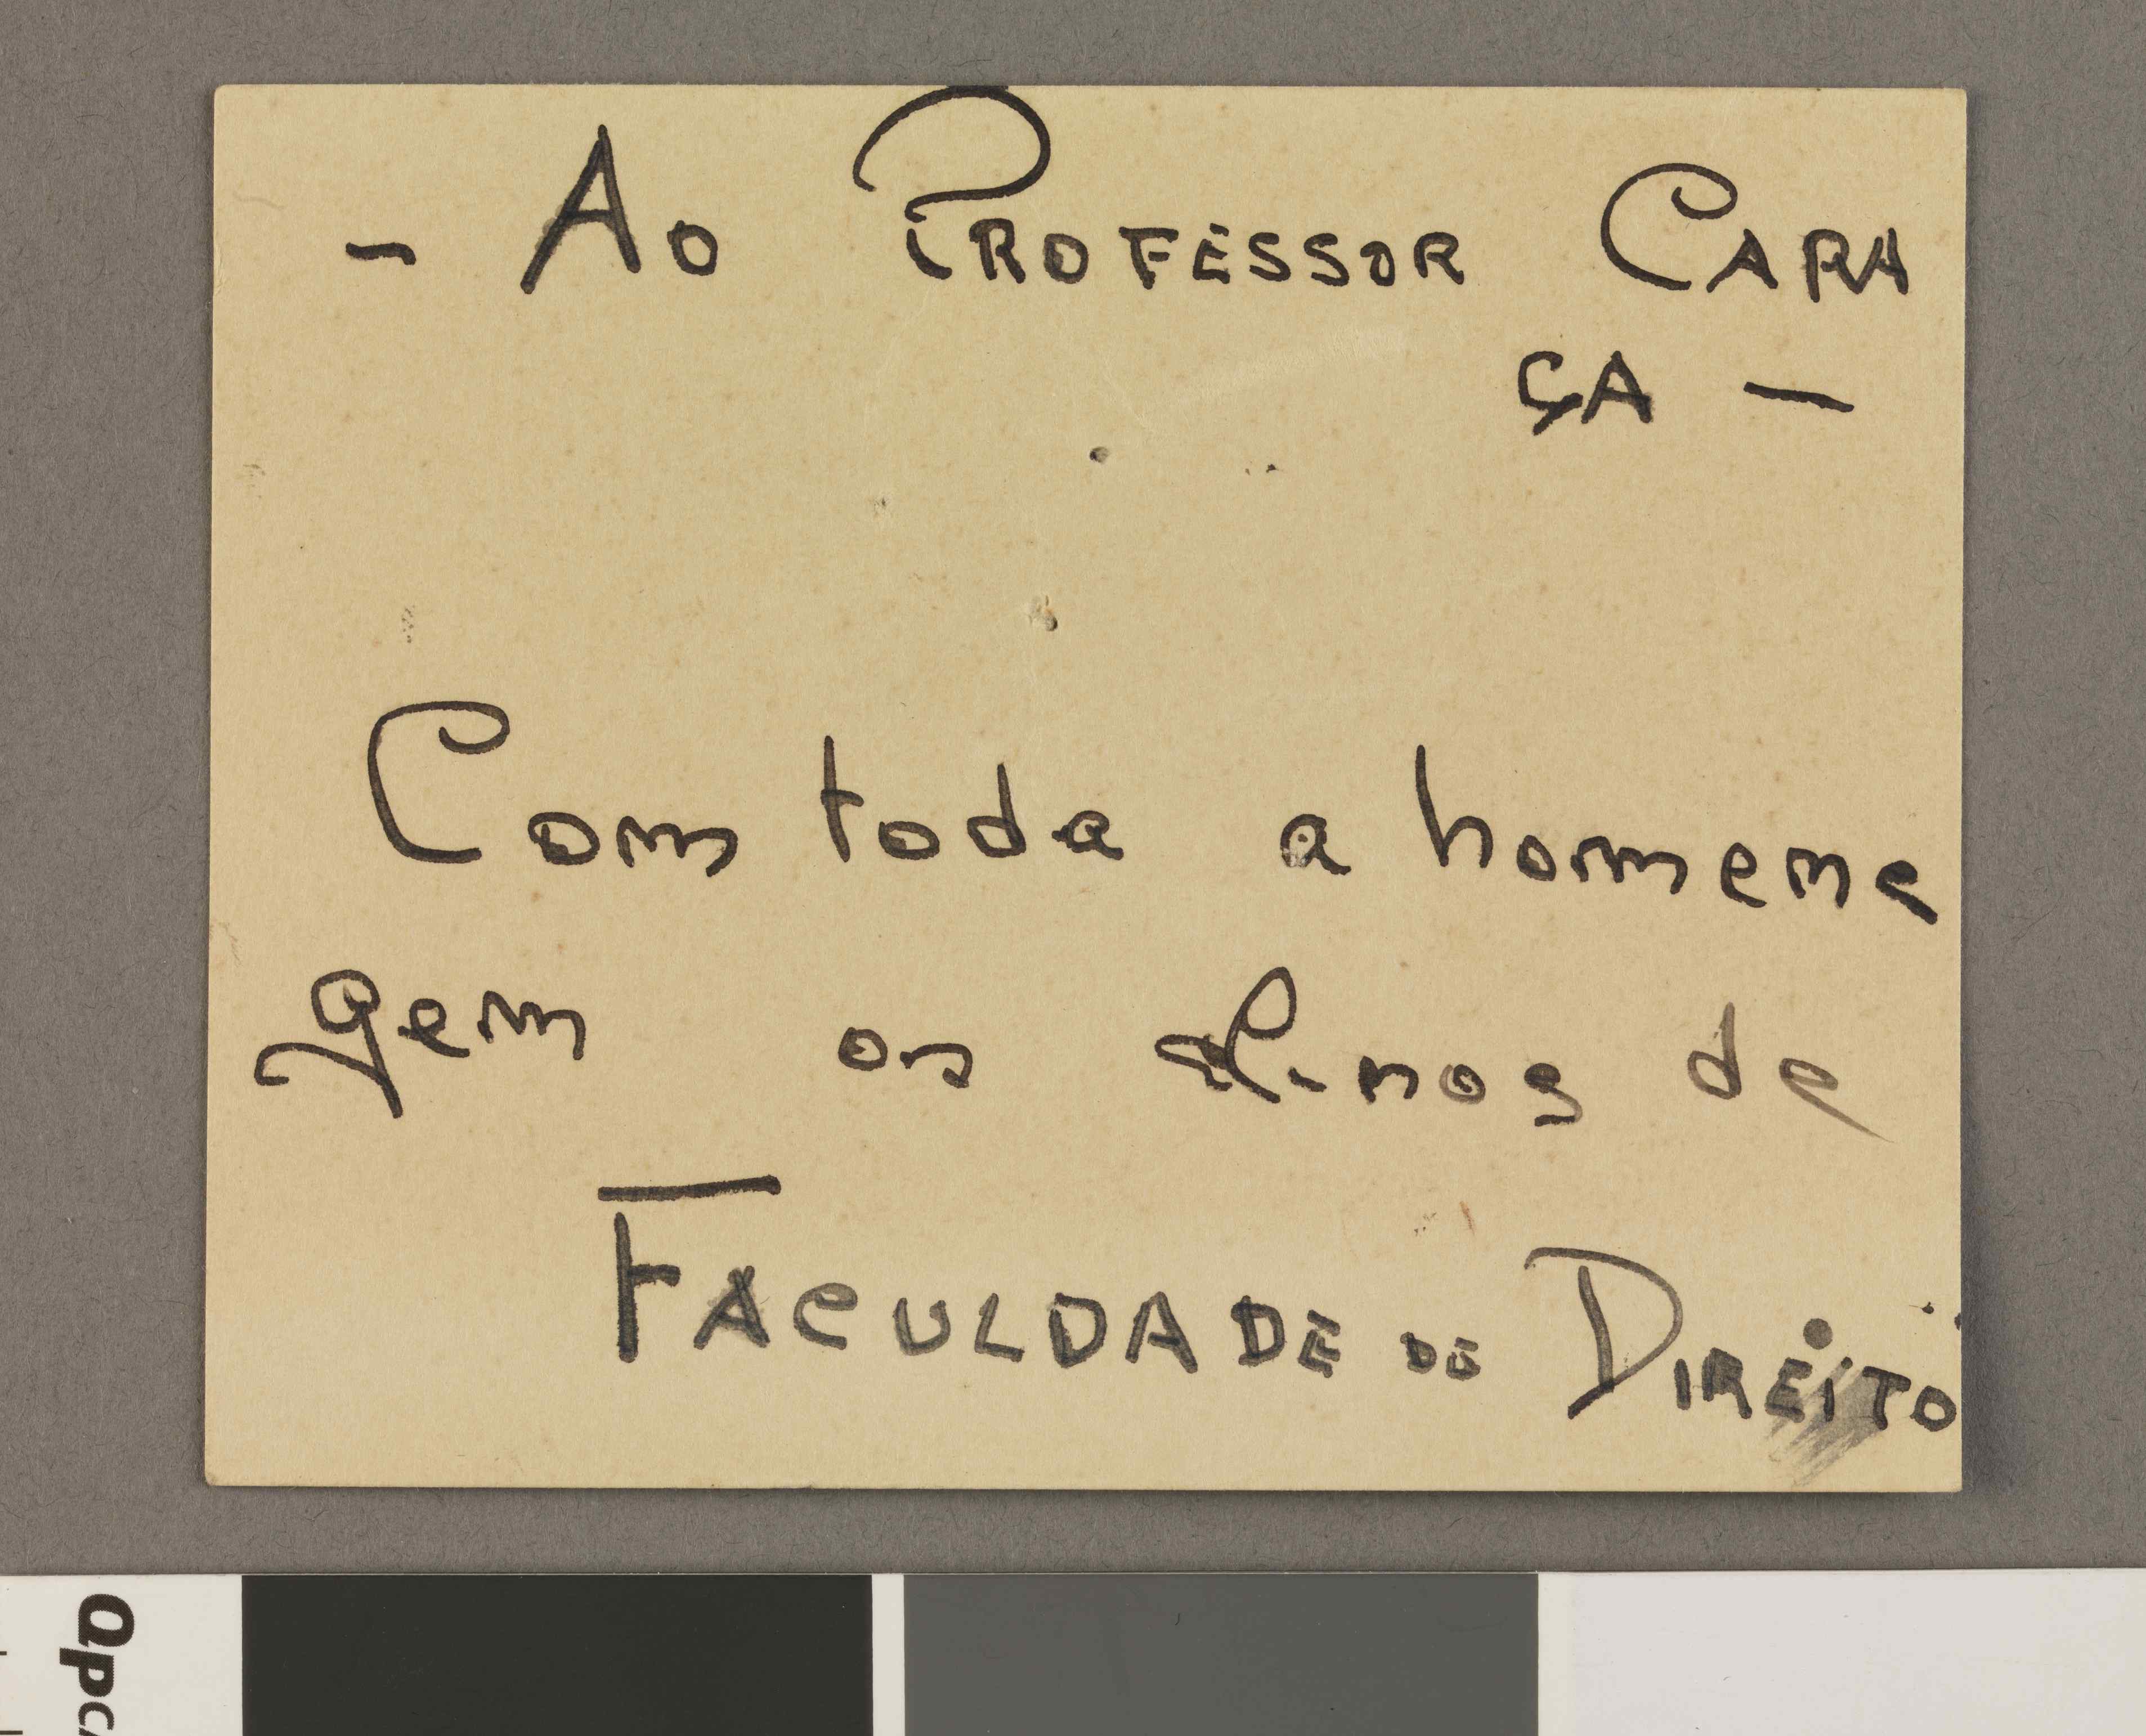 - Ao PROFESSOR CARA
ÇA -
Com toda a homena
gem os alunos da
FACULDADE DE DIREITO
Qpca